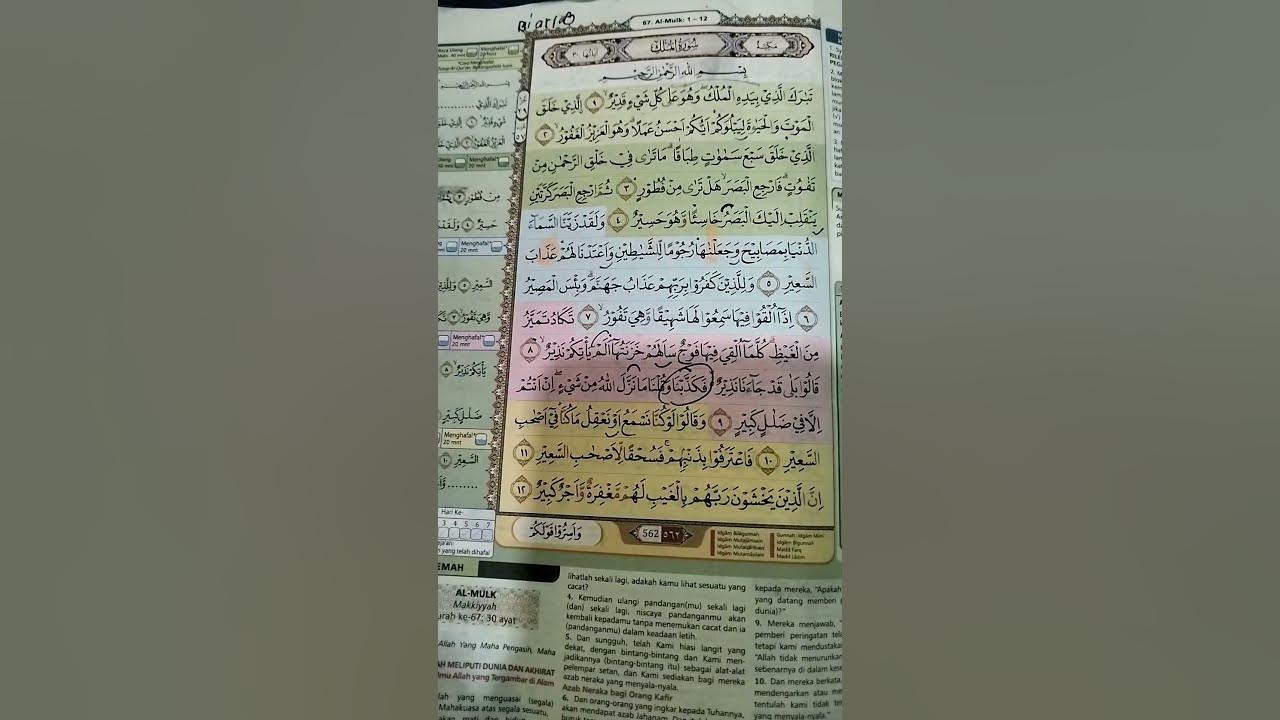 Biarlah
67. Al-Mulk: 1 – 12
مكيّة
سُوْرَةُ الْمُلْكِ
اٰيَاتُهَا ٣٠
بِسْمِ اللّٰهِ الرَّحْمٰنِ الرَّحِيْمِ
تَبٰرَكَ الَّذِيْ بِيَدِهِ الْمُلْكُ وَهُوَ عَلٰى كُلِّ شَيْءٍ قَدِيْرٌ ۙ ١ الَّذِيْ خَلَقَ
الْمَوْتَ وَالْحَيٰوةَ لِيَبْلُوَكُمْ اَيُّكُمْ اَحْسَنُ عَمَلًا ۗ وَهُوَ الْعَزِيْزُ الْغَفُوْرُ ۙ ٢
الَّذِيْ خَلَقَ سَبْعَ سَمٰوٰتٍ طِبَاقًا ۗ مَا تَرٰى فِيْ خَلْقِ الرَّحْمٰنِ مِنْ
تَفٰوُتٍ ۗ فَارْجِعِ الْبَصَرَ ۙ هَلْ تَرٰى مِنْ فُطُوْرٍ ٣ ثُمَّ ارْجِعِ الْبَصَرَ كَرَّتَيْنِ
يَنْقَلِبْ اِلَيْكَ الْبَصَرُ خَاسِئًا وَّهُوَ حَسِيْرٌ ٤ وَلَقَدْ زَيَّنَّا السَّمَاۤءَ
الدُّنْيَا بِمَصَابِيْحَ وَجَعَلْنٰهَا رُجُوْمًا لِّلشَّيٰطِيْنِ وَاَعْتَدْنَا لَهُمْ عَذَابَ
السَّعِيْرِ ٥ وَلِلَّذِيْنَ كَفَرُوْا بِرَبِّهِمْ عَذَابُ جَهَنَّمَ ۗ وَبِئْسَ الْمَصِيْرُ
٦ اِذَآ اُلْقُوْا فِيْهَا سَمِعُوْا لَهَا شَهِيْقًا وَّهِيَ تَفُوْرُ ۙ ٧ تَكَادُ تَمَيَّزُ
مِنَ الْغَيْظِ ۗ كُلَّمَآ اُلْقِيَ فِيْهَا فَوْجٌ سَاَلَهُمْ خَزَنَتُهَآ اَلَمْ يَأْتِكُمْ نَذِيْرٌ ٨
قَالُوْا بَلٰى قَدْ جَاۤءَنَا نَذِيْرٌ ۙ فَكَذَّبْنَا وَقُلْنَا مَا نَزَّلَ اللّٰهُ مِنْ شَيْءٍ ۖ اِنْ اَنْتُمْ
اِلَّا فِيْ ضَلٰلٍ كَبِيْرٍ ٩ وَقَالُوْا لَوْ كُنَّا نَسْمَعُ اَوْ نَعْقِلُ مَا كُنَّا فِيْٓ اَصْحٰبِ
السَّعِيْرِ ١٠ فَاعْتَرَفُوْا بِذَنْۢبِهِمْ ۚ فَسُحْقًا لِّاَصْحٰبِ السَّعِيْرِ ١١
اِنَّ الَّذِيْنَ يَخْشَوْنَ رَبَّهُمْ بِالْغَيْبِ لَهُمْ مَّغْفِرَةٌ وَّاَجْرٌ كَبِيْرٌ ١٢
وَاَسِرُّوْا قَوْلَكُمْ
562 ٥٦٢
Idgām Bilagunnah
Idgām Mutajānisain
Idgām Mutaqāribain
Idgām Mutamāṡilain
Gunnah, Idgām Mimi
Idgām Bigunnah
Madd Farq
Madd Lāzim
Menghafal
20 mnt
Hari Ke-
3 4 5 6 7
yang telah dihafal
EMAH
AL-MULK
Makkiyyah
urah ke-67: 30 ayat
Allah Yang Maha Pengasih, Maha
AH MELIPUTI DUNIA DAN AKHIRAT
Ilmu Allah yang Tergambar di Alam
lah yang menguasai (segala)
Mahakuasa atas segala sesuatu,
lihatlah sekali lagi, adakah kamu lihat sesuatu yang
cacat?
4. Kemudian ulangi pandangan(mu) sekali lagi
(dan) sekali lagi, niscaya pandanganmu akan
kembali kepadamu tanpa menemukan cacat dan ia
(pandanganmu) dalam keadaan letih.
5. Dan sungguh, telah Kami hiasi langit yang
dekat, dengan bintang-bintang dan Kami men-
jadikannya (bintang-bintang itu) sebagai alat-alat
pelempar setan, dan Kami sediakan bagi mereka
azab neraka yang menyala-nyala.
Azab Neraka bagi Orang Kafir
6. Dan orang-orang yang ingkar kepada Tuhannya,
akan mendapat azab Jahanam. Dan itulah
kepada mereka, "Apakah
yang datang memberi
dunia)?"
9. Mereka menjawab, "
pemberi peringatan tel
tetapi kami mendustaka
"Allah tidak menurunkan
sebenarnya di dalam kese
10. Dan mereka berkata,
mendengarkan atau me
tentulah kami tidak te
yang menyala-nyala."